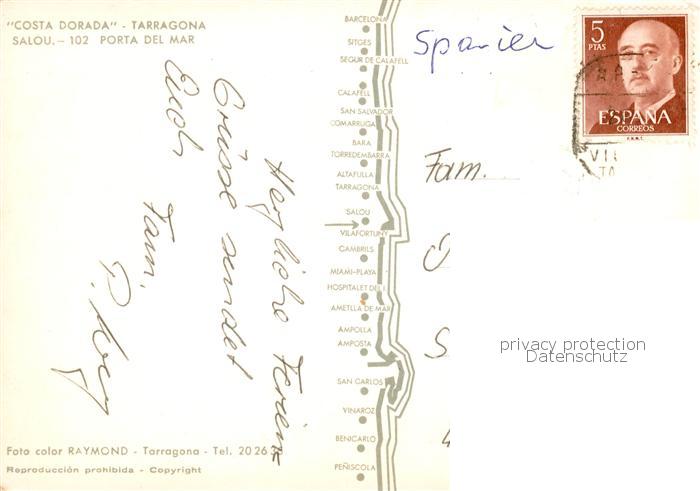 "COSTA DORADA" - TARRAGONA
SALOU. - 102 PORTA DEL MAR
Herzliche Ferien
Grüsse sendet
Euch
Fam.
BARCELONA
SITGES
SEGUR DE CALAFELL
CALAFELL
SAN SALVADOR
COMARRUGA
BARA
TORREDEMBARRA
ALTAFULLA
TARRAGONA
SALOU
VILAFORTUNY
CAMBRILS
MIAMI-PLAYA
HOSPITALET DEL I.
AMETLLA DE MAR
AMPOLLA
AMPOSTA
SAN CARLOS
VINAROZ
BENICARLO
PEÑISCOLA
Foto color RAYMOND - Tarragona - Tel. 20 26
Reproducción prohibida - Copyright
Spanier
5
PTAS
ESPAÑA
CORREOS
F.N.M.T.
Fam.
privacy protection
Datenschutz